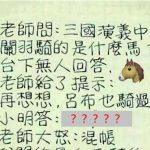 老師問：三國演義中
關羽騎的是什麼馬？
台下無人回答，
老師給了提示：
再想想，呂布也騎過
小明答：？？？？？
老師大怒：混帳